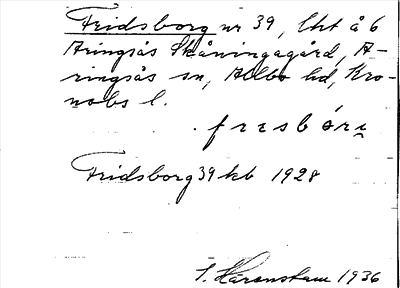 Fridsborg nr 39, Lht å 6
Aringsås Skåningagård, A-
ringsås sn, Allbo hd, Kro-
nobs l.
. fresbórj
Fridsborg 39 kb 1928
S. Härenstam 1936